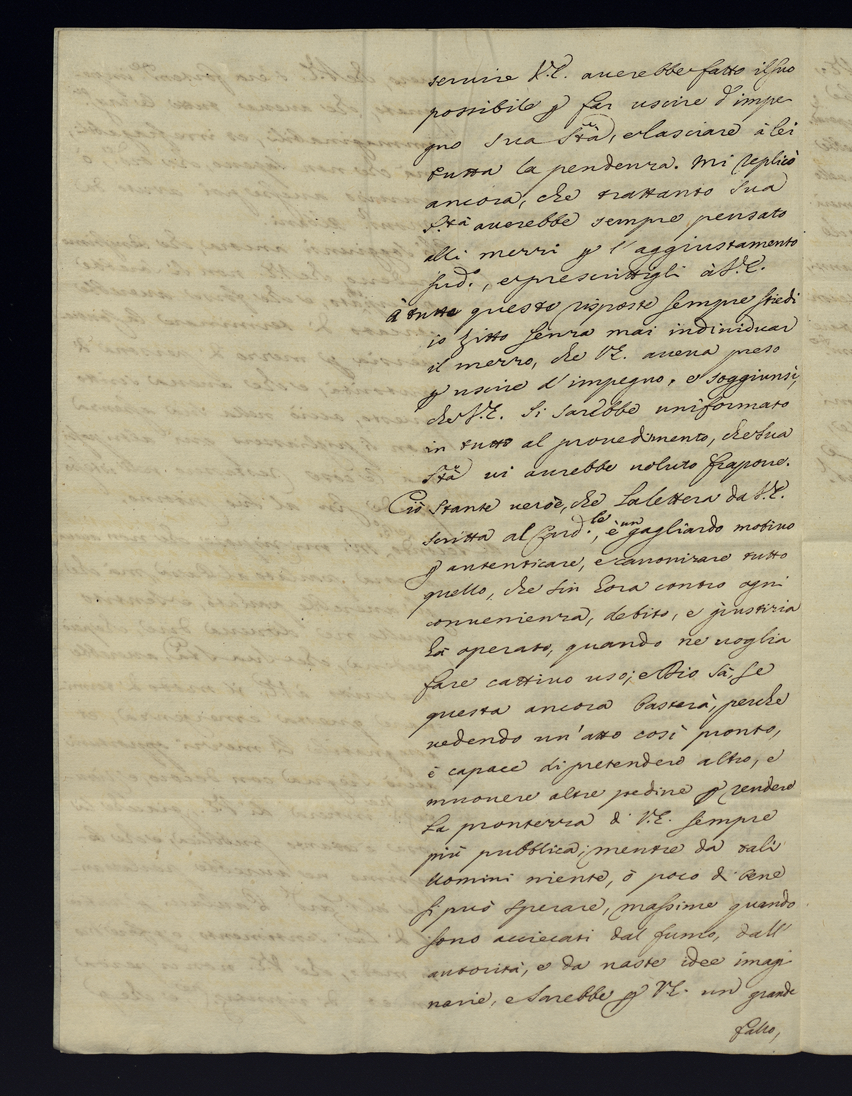 servire V.E. averebbe fatto il suo
possibile p far uscire d'impe-
gno sua Stà, e lasciare à lei
tutta la pendenza. Mi replicò
ancora, che trattanto sua
Stà averebbe sempre pensato
alli mezzi p l'aggiustamento
sud.º, e prescrittigli à V.E.
à tutte queste risposte sempre stiedi
io zitto senza mai individuar
il mezzo, che V.E. aveva preso
p uscire d'impegno, e soggiunsi,
che V.E. si sarebbe uniformato
in tutto al provedimento, che sua
Stà vi avrebbe voluto frapone.
Ciò stante verò è, che la lettera da V.E.
scritta al Card.le, è un gagliardo motivo
p autenticare, e canonizare tutto
quello, che sin hora contro ogni
convenienza, debito, e giustizia
hà operato, quando ne voglia
fare cattivo uso; e Dio sà, se
questa ancora basterà, perche
vedendo un'atto così pronto,
è capace di pretendere altro, e
muovere altre pedine p rendere
la prontezza d V.E. sempre
più pubblica; mentre da tali
Uomini niente, ò poco di bene
si può sperare, massime quando
sono acciecati dal fumo, dall'
autorità, e da vaste idee imagi-
narie, e sarebbe p V.E. un grande
fallo,